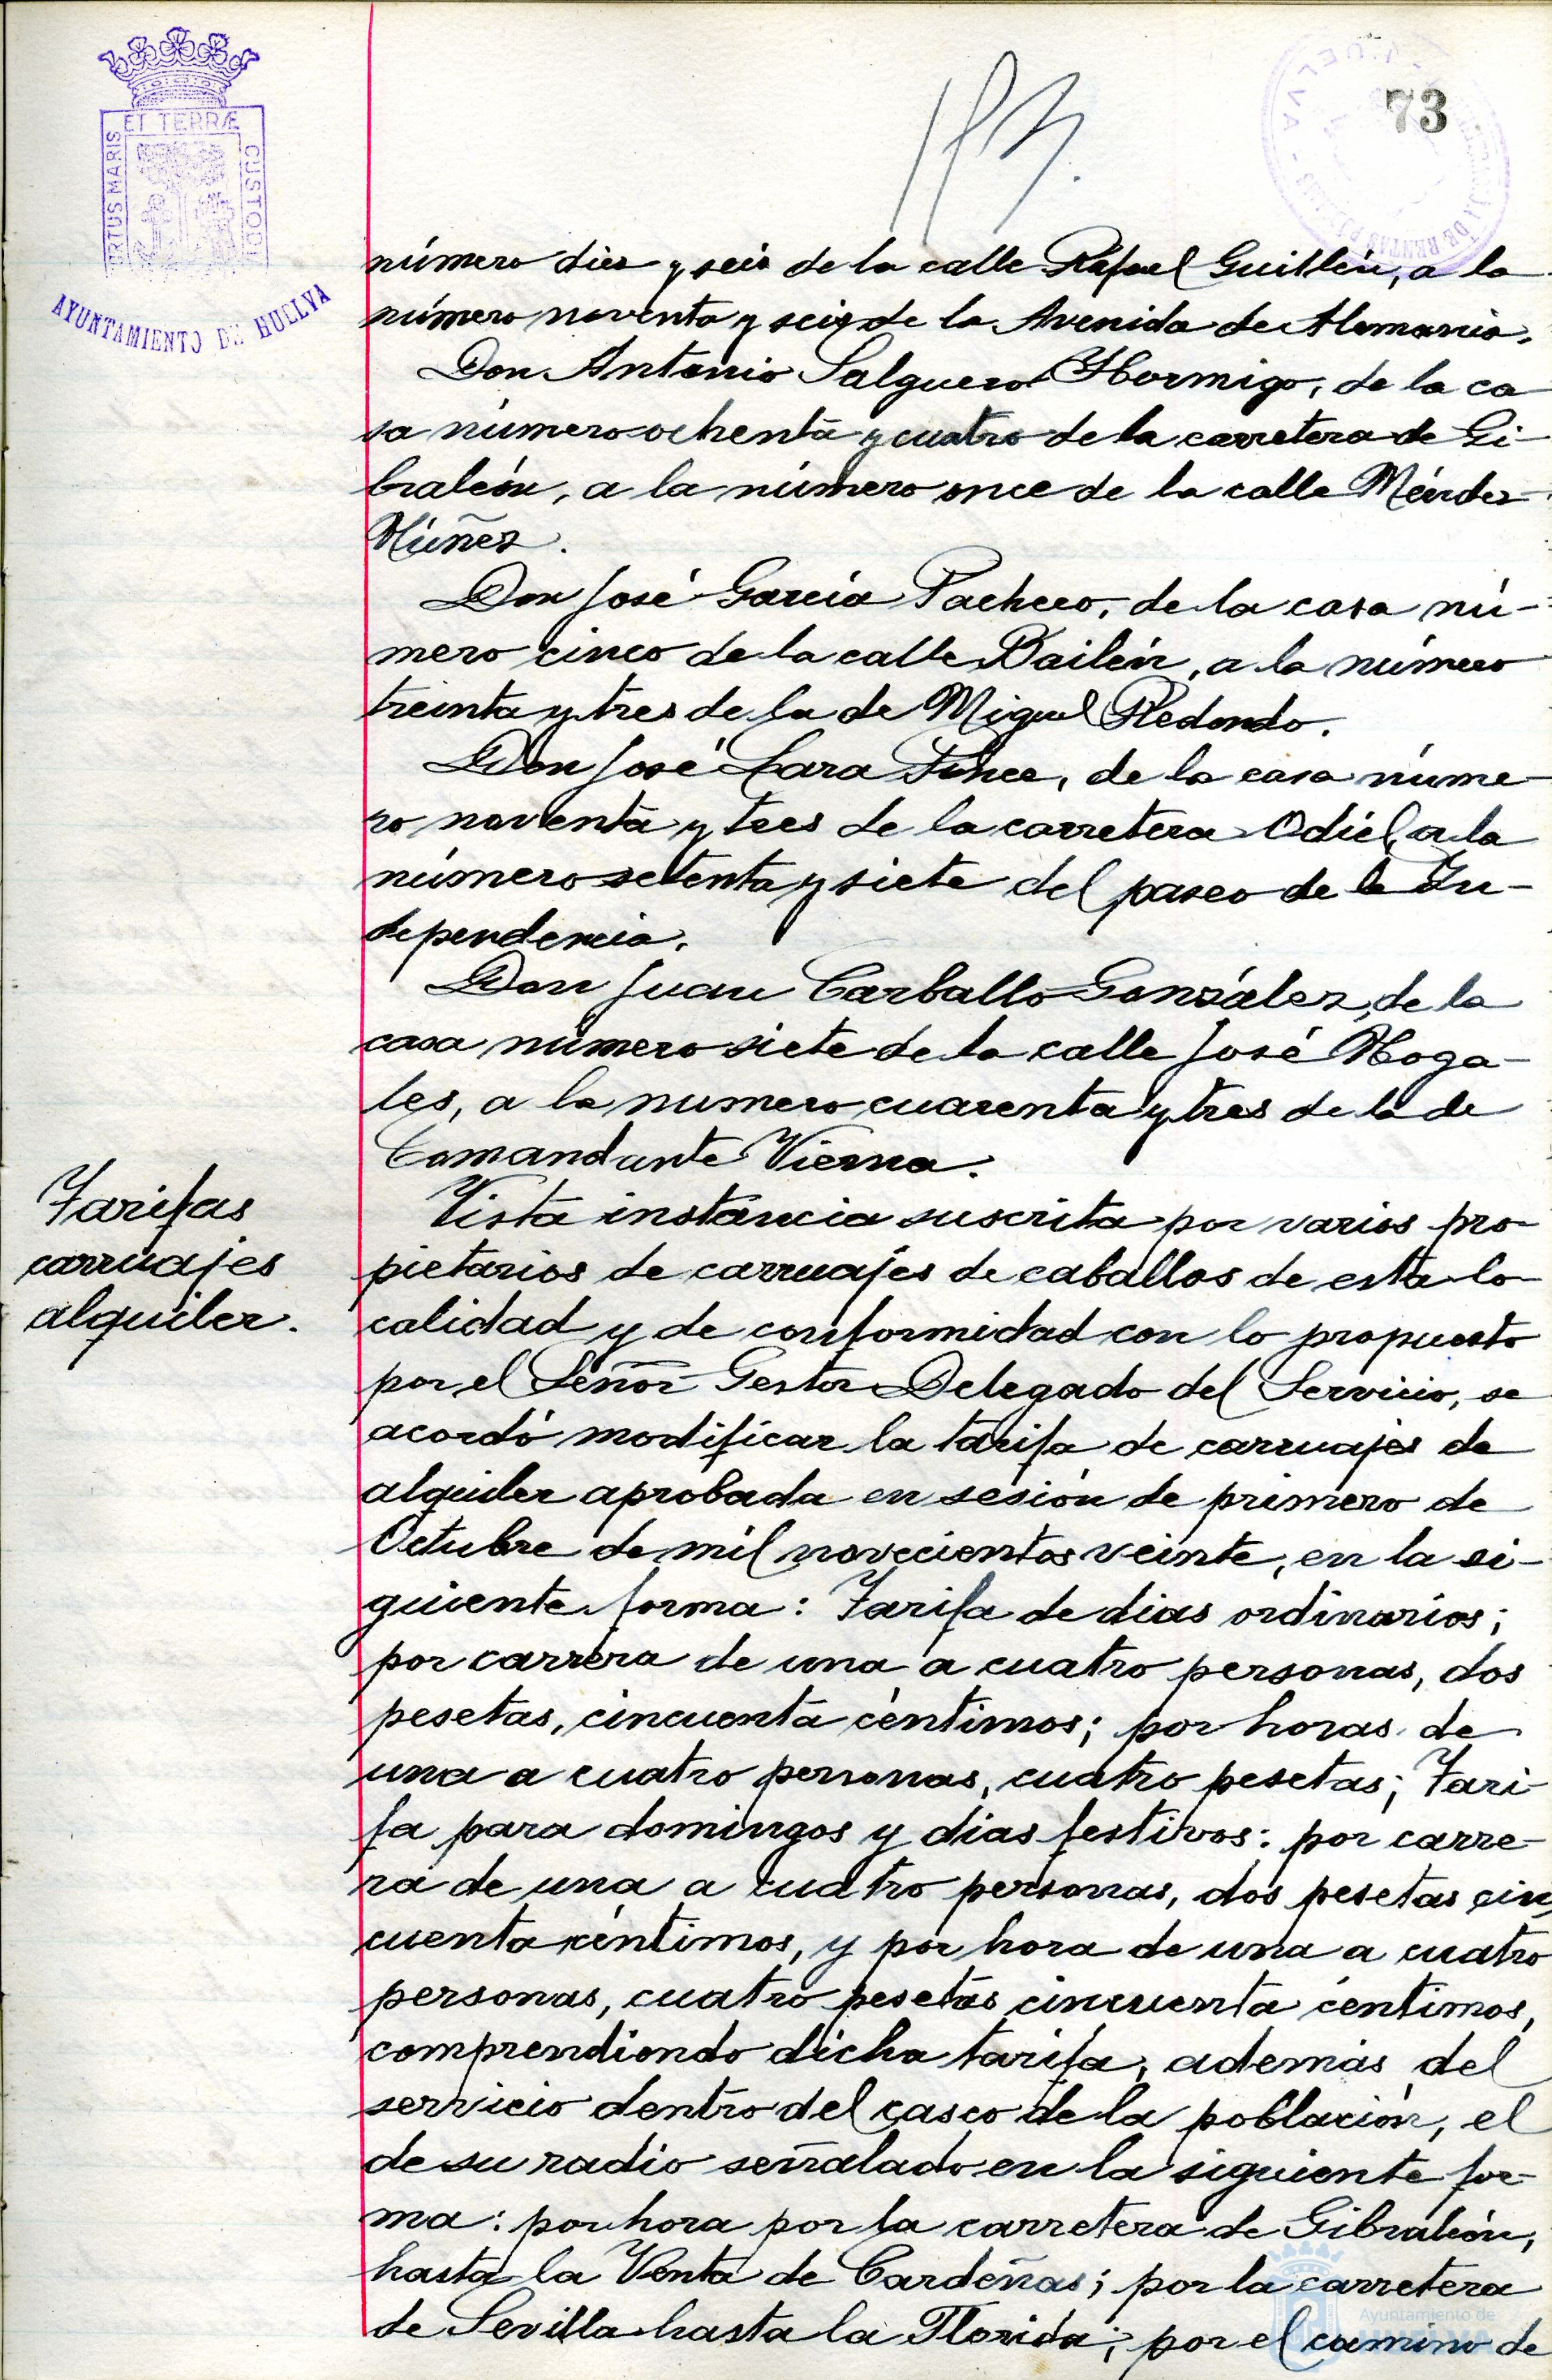 73
ET TERRÆ
CUSTODI
AYUNTAMIENTO DE HUELVA
número diez y seis de la calle Rafael Guillén, a la
número noventa y seis de la Avenida de Alemania.
Don Antonio Salguero Hormigo, de la ca
sa número ochenta y cuatro de la carretera de Gi-
braleón, a la número once de la calle Méndez
Núñez.
Don José García Pacheco, de la casa nú-
mero cinco de la calle Bailén, a la número
treinta y tres de la de Miguel Redondo.
Don José Lara Ponce, de la casa núme-
ro noventa y tres de la carretera Odiel, a la
número setenta y siete del paseo de la In-
dependencia.
Don Juan Carballo González, de la
casa número siete de la calle José Noga-
les, a la numero cuarenta y tres de la de
Comandante Vierna.
Tarifas
carruajes
alquiler.
Vista instancia suscrita por varios pro-
pietarios de carruajes de caballos de esta lo-
calidad y de conformidad con lo propuesto
por el Señor Gestor Delegado del Servicio, se
acordó modificar la tarifa de carruajes de
alquiler aprobada en sesión de primero de
Octubre de mil novecientos veinte, en la si-
guiente forma: Tarifa de dias ordinarios;
por carrera de una a cuatro personas, dos
pesetas, cincuenta céntimos; por horas de
una a cuatro personas, cuatro pesetas; Tari-
fa para domingos y dias festivos: por carre-
ra de una a cuatro personas, dos pesetas cin
cuenta céntimos, y por hora de una a cuatro
personas, cuatro pesetas cincuenta céntimos,
comprendiondo dicha tarifa, además del
servicio dentro del casco de la población, el
de su radio señalado en la siguiente for-
ma: por hora por la carretera de Gibraleón,
hasta la Venta de Cardeñas; por la carretera
de Sevilla hasta la Florida; por el camino de
Ayuntamiento de
HUELVA